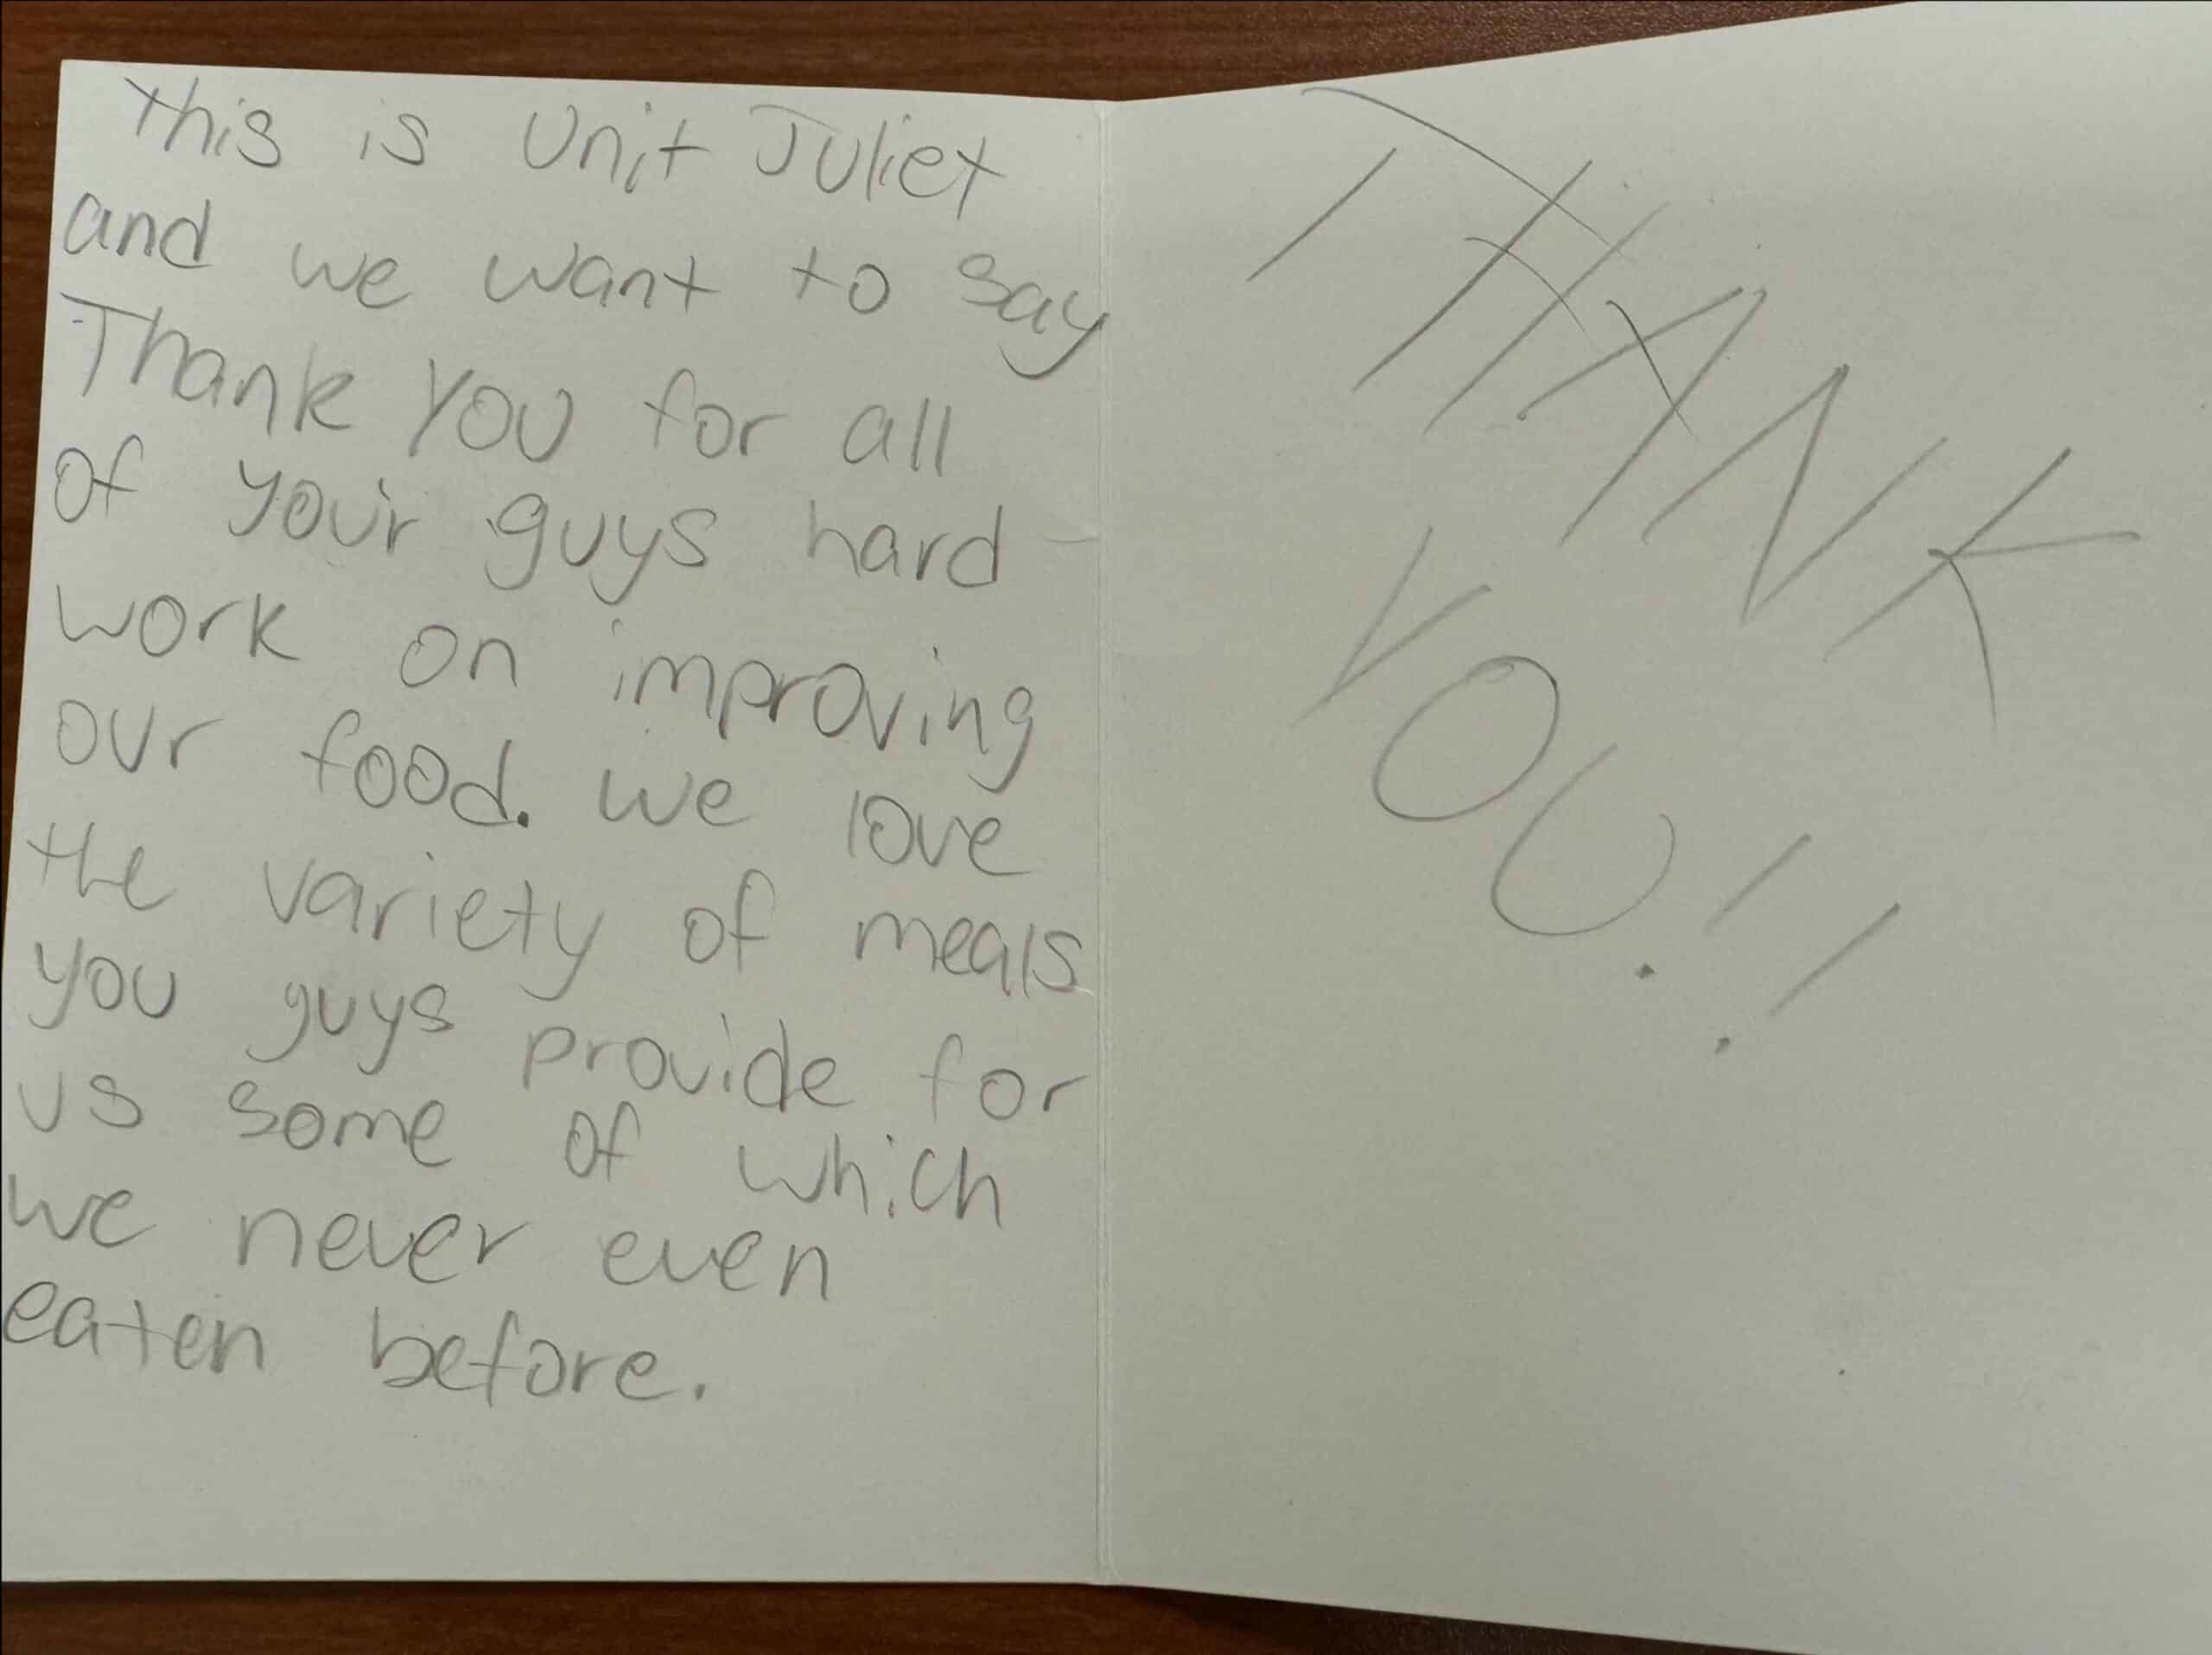 This is Unit Juliet
and we want to say
Thank You for all
of your guys hard
work on improving
our food. we love
the variety of meals
you guys provide for
us some of which
we never even
eaten before.
THANK
YOU!!